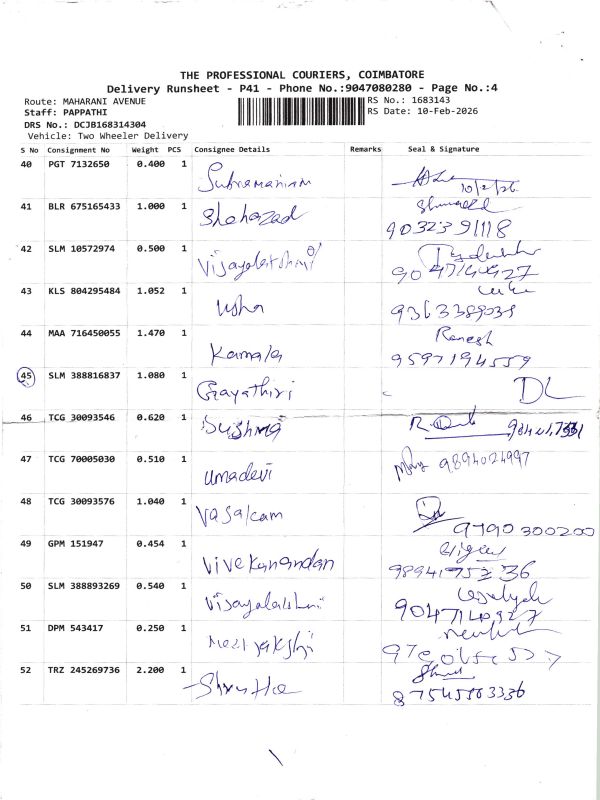 THE PROFESSIONAL COURIERS, COIMBATORE
Delivery Runsheet - P41 - Phone No.:9047080280 - Page No.:4
Route: MAHARANI AVENUE RS No.: 1683143
Staff: PAPPATHI RS Date: 10-Feb-2026
DRS No.: DCJB168314304
Vehicle: Two Wheeler Delivery
S No Consignment No Weight PCS Consignee Details Remarks Seal & Signature
40 PGT 7132650 0.400 1 Subramaniam 10/2/26
41 BLR 675165433 1.000 1 Shehazad
9032391118
42 SLM 10572974 0.500 1 Vijayalakshmi
9047140927
43 KLS 804295484 1.052 1 Usha
9363389039
44 MAA 716450055 1.470 1 Kamala Ramesh
9597194559
45 SLM 388816837 1.080 1 Gayathiri DL
46 TCG 30093546 0.620 1 Sushma
47 TCG 70005030 0.510 1 Umadevi 9894024997
48 TCG 30093576 1.040 1
9790300200
49 GPM 151947 0.454 1 Vivekanandan
50 SLM 388893269 0.540 1 Vijayalakshmi
9047140927
51 DPM 543417 0.250 1
52 TRZ 245269736 2.200 1